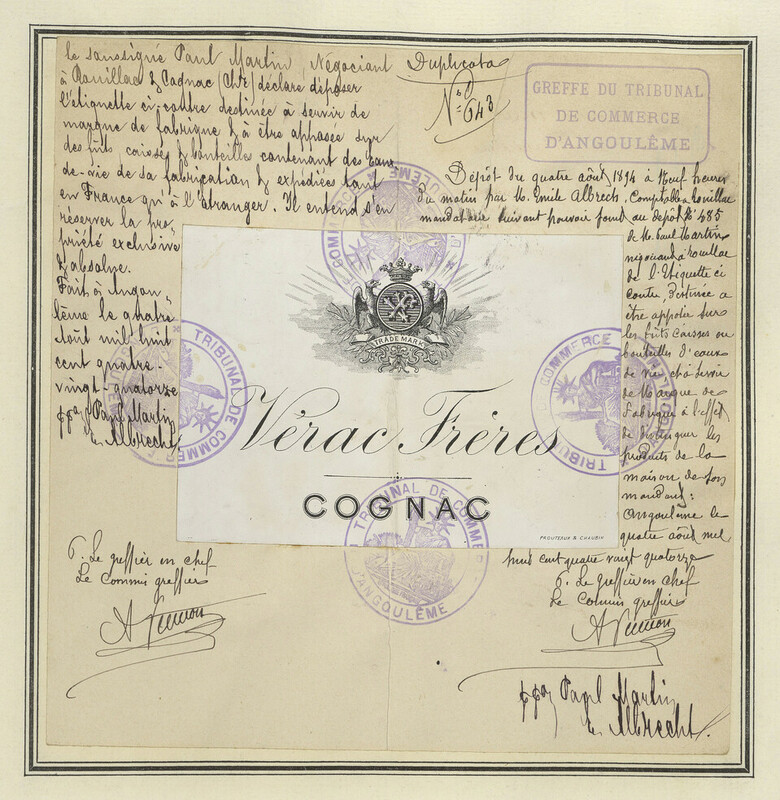 le soussigné Paul Martin, Négociant
à Rouillac & Cognac (Chte) déclare déposer
l'étiquette ci-contre destinée à servir de
marque de fabrique & à être apposée sur
des fûts caisses & bouteilles contenant des Eaux
de-vie de sa fabrication & expédiées tant
en France qu'à l'étranger. Il entend s'en
réserver la pro-
priété exclusive
& absolue.
Fait à Angou-
lême le quatre
août mil huit
cent quatre-
vingt-quatorze
ppon Paul Martin
E. Albrecht
Duplicata
No 643
GREFFE DU TRIBUNAL
DE COMMERCE
D'ANGOULÊME
Dépôt du quatre août 1894 à Neuf heures
du matin par M. Emile Albrecht, Comptable à Rouillac
mandataire suivant pouvoir fond au dépôt No 485
de M. Paul Martin
négociant à Rouillac
de l'Etiquette ci
contre, Destinée a
être apposée sur
les fûts caisses ou
bouteilles d'eaux
de vie et à servir
de Marque de
Fabrique à l'effet
de distinguer les
produits de la
maison de son
mandant:
Angoulême le
quatre août mil
huit cent quatre vingt quatorze
TRADE MARK
Vérac Frères
COGNAC
PROUTEAUX & CHAUBIN
TRIBUNAL DE COMMERCE
D'ANGOULÊME
TRIBUNAL DE COMMER
TRIBUNAL DE COMMERCE
TRIBUNAL DE COMMERCE
D'ANGOULÊME
P. Le greffier en chef
Le commis greffier
P. Le greffier en chef
Le Commis greffier
ppon Paul Martin
E. Albrecht